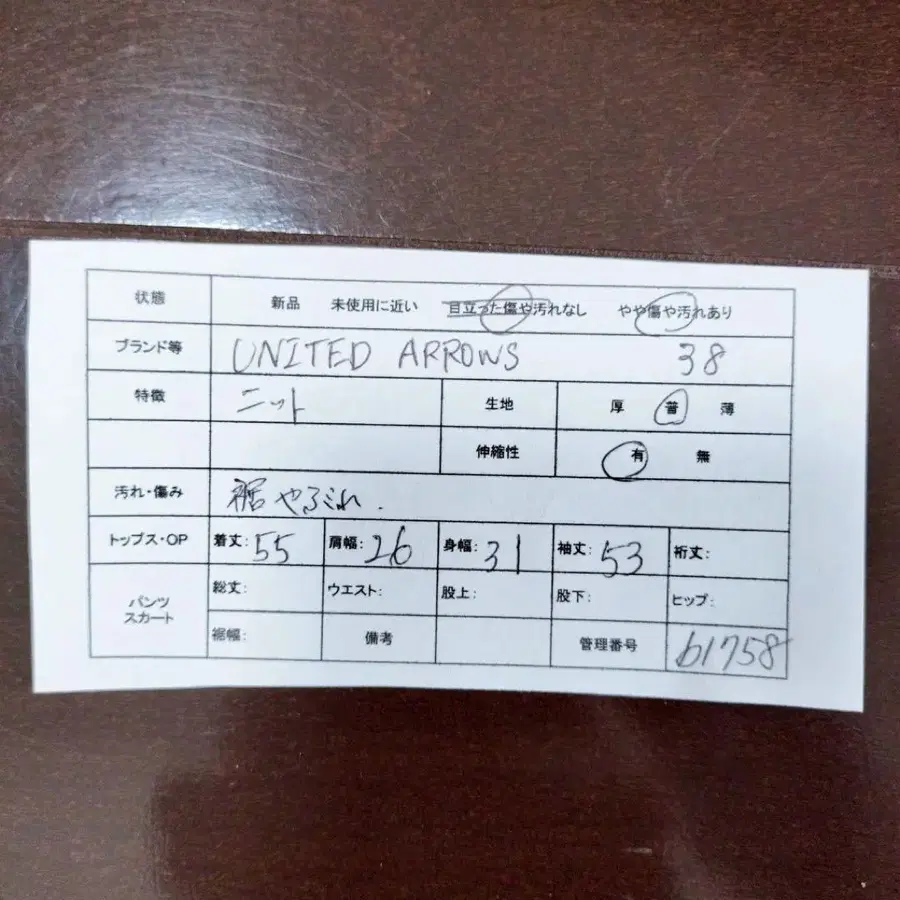 状態 新品 未使用に近い 目立った傷や汚れなし やや傷や汚れあり
ブランド等 UNITED ARROWS 38
特徴 ニット 生地 厚 普 薄
伸縮性 有 無
汚れ・傷み 裾やぶれ.
トップス・OP 着丈: 55 肩幅: 26 身幅: 31 袖丈: 53 裄丈:
パンツ スカート 総丈: ウエスト: 股上: 股下: ヒップ:
裾幅: 備考 管理番号 b1758